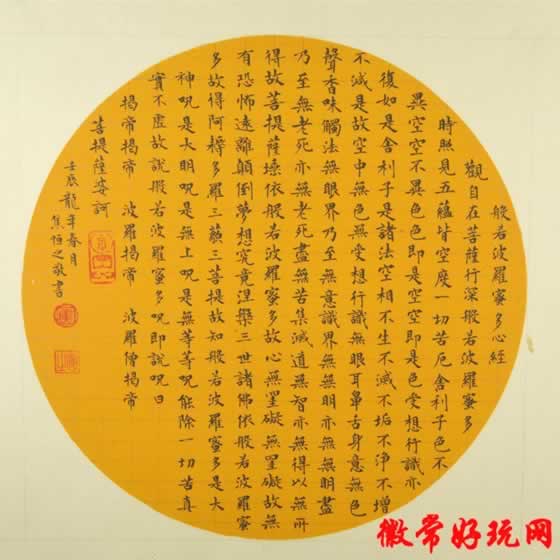 般若波羅蜜多心經
觀自在菩薩行深般若波羅蜜多
時照見五蘊皆空度一切苦厄舍利子色不
異空空不異色色即是空空即是色受想行識亦
復如是舍利子是諸法空相不生不滅不垢不淨不增
不減是故空中無色無受想行識無眼耳鼻舌身意無色
聲香味觸法無眼界乃至無意識界無無明亦無無明盡
乃至無老死亦無老死盡無苦集滅道無智亦無得以無所
得故菩提薩埵依般若波羅蜜多故心無罣礙無罣礙故無
有恐怖遠離顛倒夢想究竟涅槃三世諸佛依般若波羅蜜
多故得阿耨多羅三藐三菩提故知般若波羅蜜多是大
神呪是大明呪是無上呪是無等等呪能除一切苦真
實不虛故說般若波羅蜜多呪即說呪曰
揭帝揭帝 波羅揭帝 波羅僧揭帝
菩提薩婆訶
壬辰龍年春月
焦恒之敬書
徽常好玩网